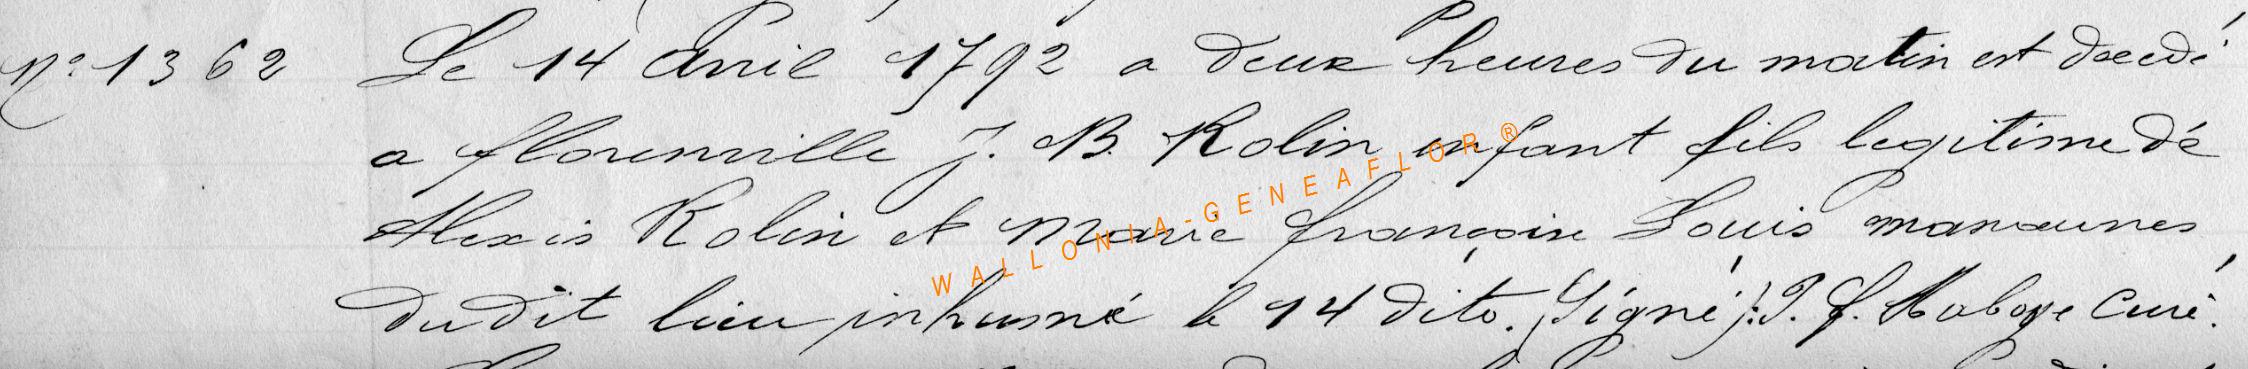 No. 1362 Le 14 Avril 1792 a deux heures du matin est decedé
a florenville J. B. Rolin enfant fils legitime dé
Alexis Rolin et Marie françoise Louis manœuvres
du dit lieu inhumé le 14 dito. (Signé): J. f. Habaye Curé.
WALLONIA-GENEAFLOR®